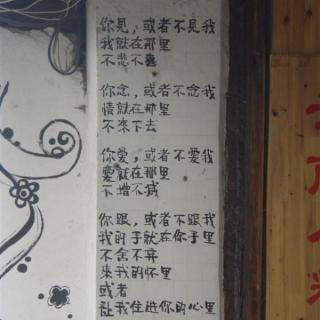 你見，或者不見我
我就在那里
不悲不喜
你念，或者不念我
情就在那里
不來下去
你爱，或者不爱我
爱就在那里
不增不减
你跟，或者不跟我
我的手就在你手里
不舍不弃
來我的怀里
或者
让我住进你的心里